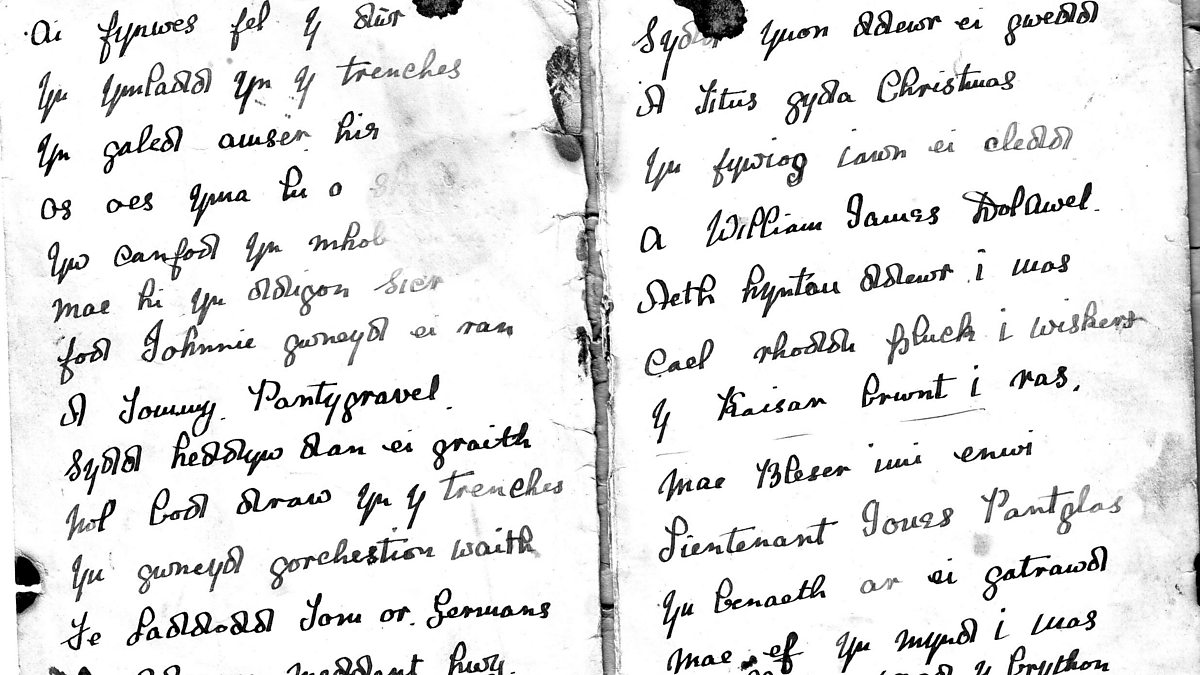 Ai fynwes fel y dûr
Yn Ymladd yn y trenches
Yn galed amser hir
Os oes yma lu o
Yw canfod yn mhob
Mae hi yn ddigon sicr
fod Johnnie gwneyd ei ran
A Tommy Pantygravel.
Sydd heddyw dan ei graith
Nol bod draw yn y trenches
Yn gwneyd gorchestion waith
Fe Laddodd Tom or Germans
meddent hwy.
Sydd yuon ddewr ei gwedd
A Titus gyda Christmas
Yn fywiog iawn ei cledd
A William James Dolawel.
Aeth hyntau ddewr i mas
Cael rhoddu pluck i wiskers
Y Kaisar brwnt i ras.
Mae Bleser imi enwi
Lientenant Jones Pantglas
Yn benaeth ar ei gatrawd
Mae ef yn mynd i mas
y brython